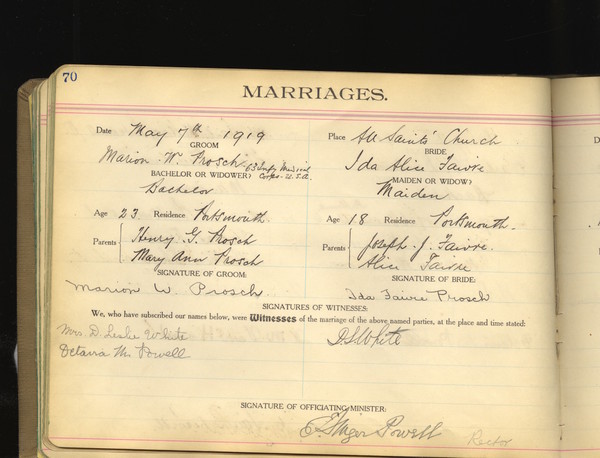 70
MARRIAGES.
Date May 7th 1919
Place All Saints' Church
GROOM
BRIDE
Marion W. Prosch 63 Infy Medical Corps. U.S.A.
Ida Alice Faivre
BACHELOR OR WIDOWER?
MAIDEN OR WIDOW?
Bachelor
Maiden
Age 23 Residence Portsmouth
Age 18 Residence Portsmouth.
Parents Henry G. Prosch
Mary Ann Prosch
Parents Joseph J. Faivre.
Alice Faivre
SIGNATURE OF GROOM:
SIGNATURE OF BRIDE:
Marion W. Prosch
Ida Faivre Prosch
SIGNATURES OF WITNESSES:
We, who have subscribed our names below, were Witnesses of the marriage of the above named parties, at the place and time stated:
Mrs. D. Leslie White
D. L. White
Octavia M. Powell
SIGNATURE OF OFFICIATING MINISTER:
Powell Rector